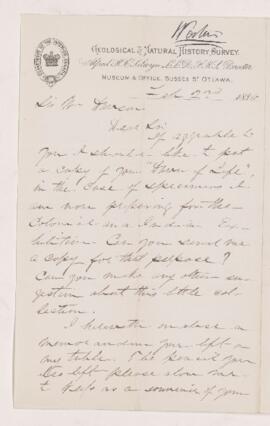 GEOLOGICAL & NATURAL HISTORY SURVEY.
Alfred R. C. Selwyn, L.L.D., F.R.S., Director
MUSEUM & OFFICE, SUSSEX ST OTTAWA.
Feb 188
Sir Wm Dawson
Dear Sir
If agreable to
you I should like to put
a copy of your "
in the case of specimens I
am now preparing for the
Colonial and Indian Ex-
hibition. Can you send me
a copy for that purpose?
Can you make any other sug-
gestion about this little col-
lection.
I herewith enclose a
memorandum you left on
my table. The pencil you
also left please allow me
to keep as a souvenir of your